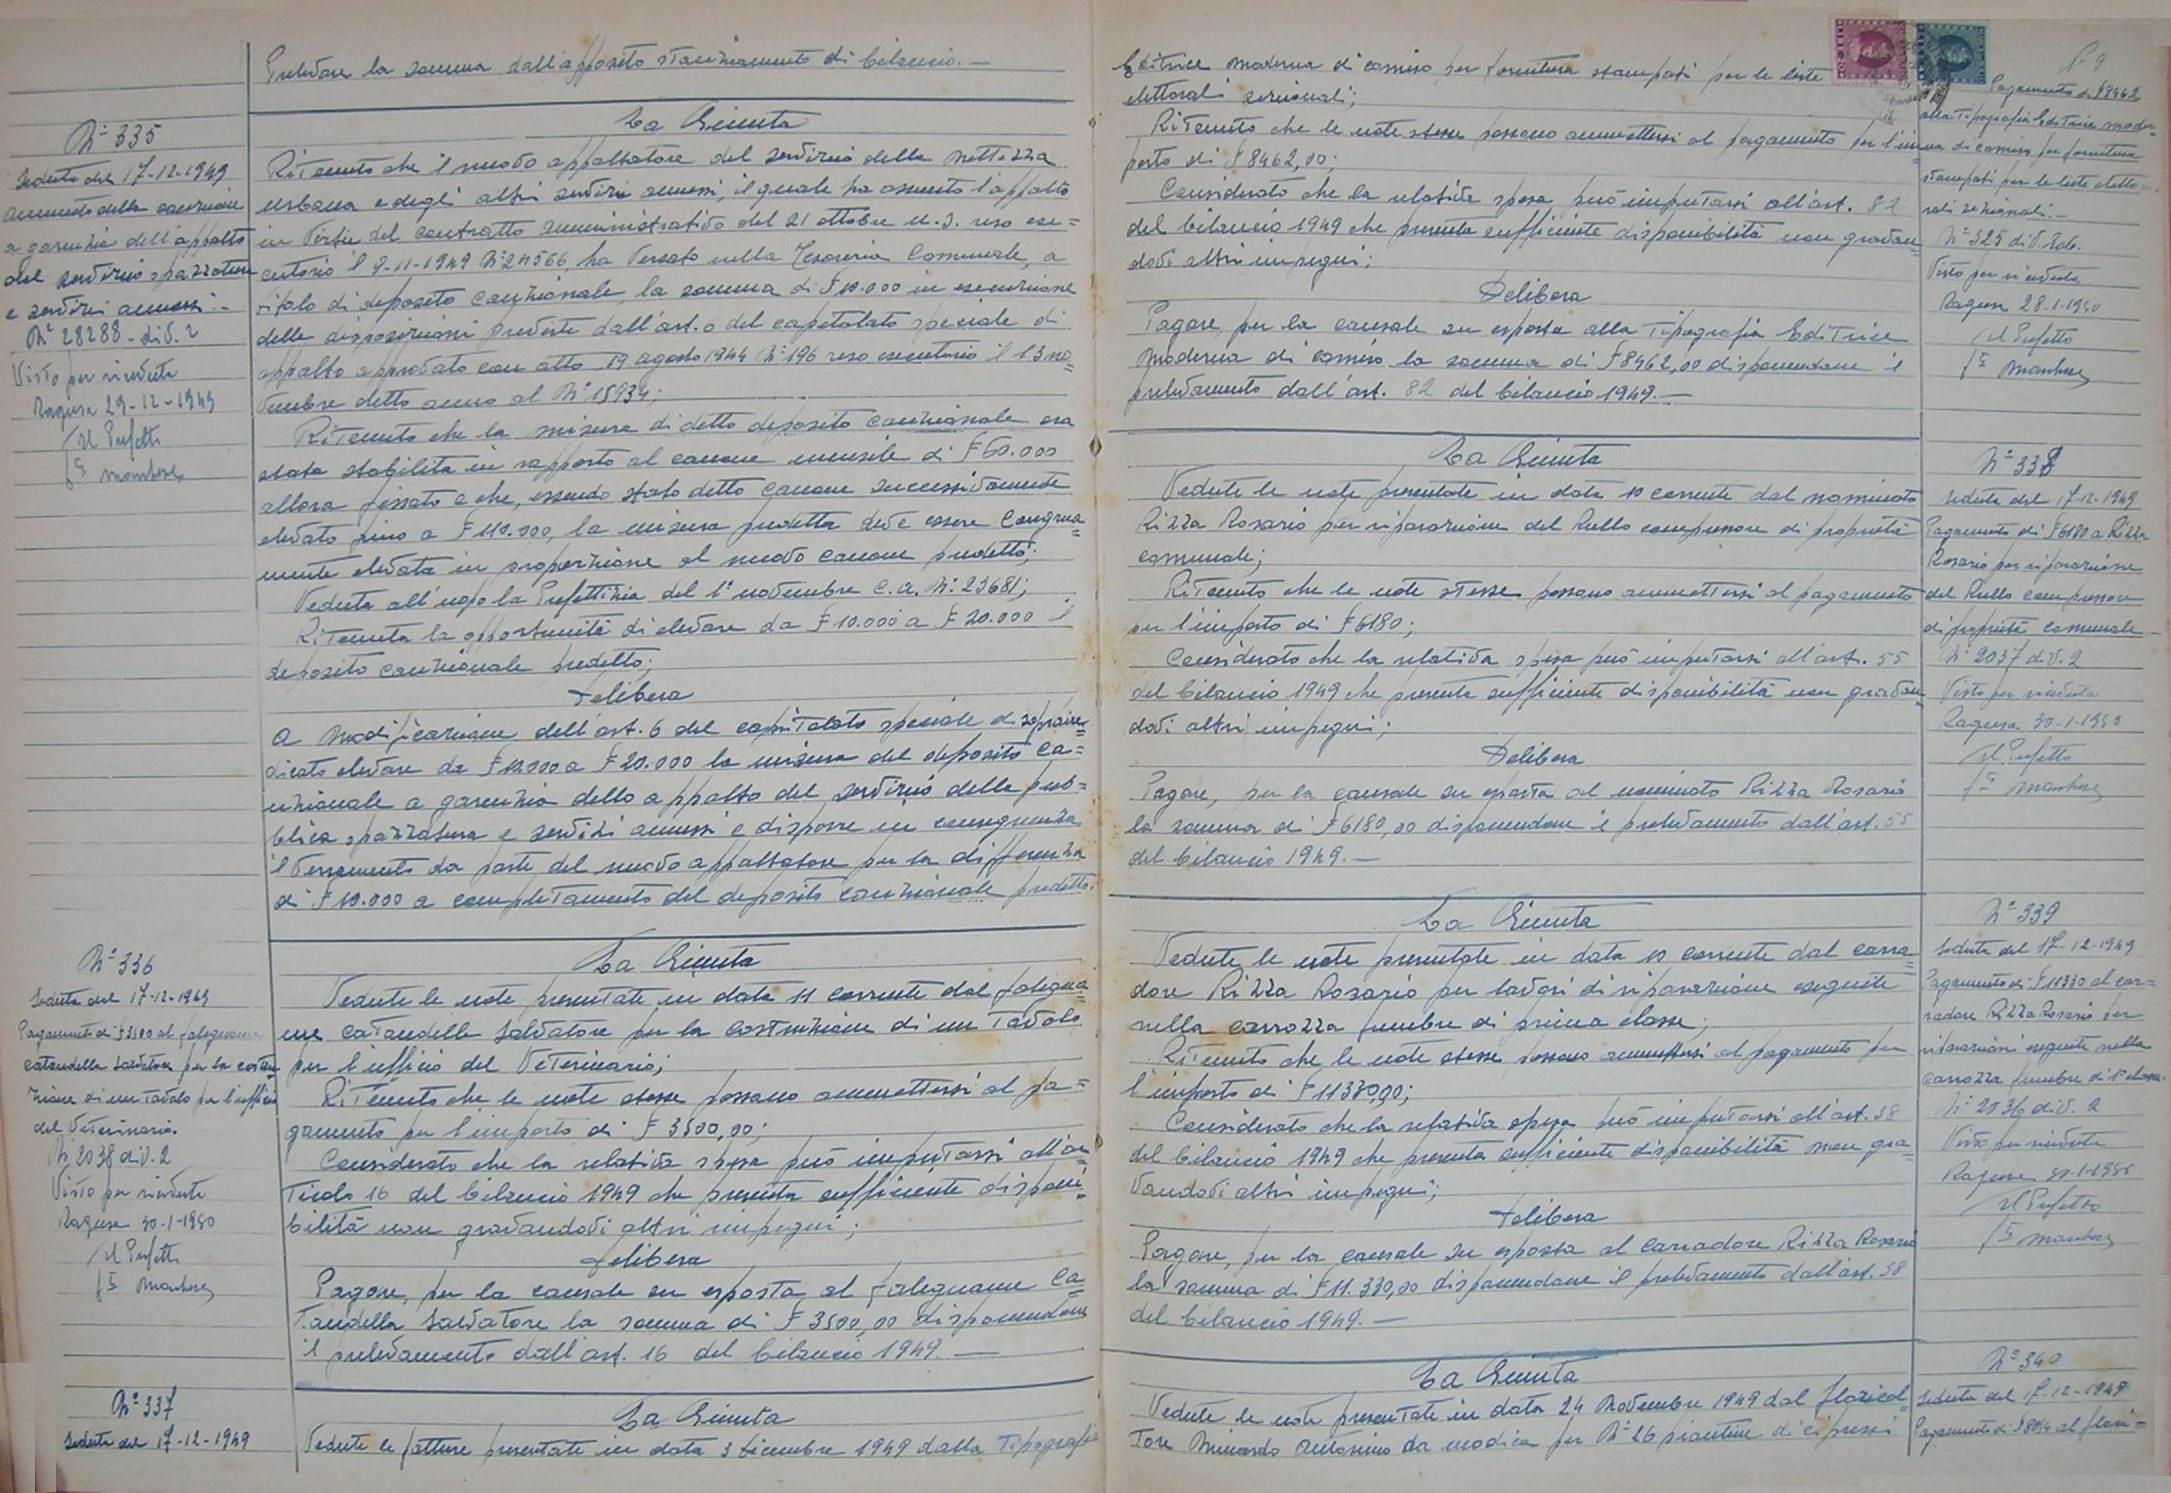 Prelevare la somma dall'apposito stanziamento di bilancio. —
N° 335
Seduta del 17-12-1949
aumento della cauzione
a garanzia dell'appalto
del servizio spazzatura
e servizi annessi. -
N° 28288 - div. 2
Visto per ricevuta
Ragusa 29-12-1949
Il Prefetto
La Giunta
Ritenuto che il nuovo appaltatore del servizio della nettezza
urbana e degli altri servizi annessi, il quale ha assunto l'appalto
in virtù del contratto amministrativo del 21 ottobre u.s. reso ese=
cutorio il 9-11-1949 N° 24566, ha versato nella Tesoreria Comunale, a
titolo di deposito cauzionale, la somma di £ 10.000 in esecuzione
delle disposizioni previste dall'art. 6 del capitolato speciale di
appalto approvato con atto 19 agosto 1944 N° 196 reso esecutorio il 13 no=
vembre detto anno al N° 15934;
Ritenuto che la misura di detto deposito cauzionale era
stata stabilita in rapporto al canone mensile di £ 60.000
allora fissato e che, essendo stato detto canone successivamente
elevato fino a £ 110.000, la misura predetta deve essere congrua=
mente elevata in proporzione al nuovo canone predetto;
Veduta all'uopo la Prefettizia del 1° novembre c.a. N° 23681;
Ritenuta la opportunità di elevare da £ 10.000 a £ 20.000 il
deposito cauzionale predetto;
Delibera
A modificazione dell'art. 6 del capitolato speciale di sopra in=
dicato elevare da £ 10.000 a £ 20.000 la misura del deposito ca=
uzionale a garanzia dello appalto del servizio della pub=
blica spazzatura e servizi annessi e disporre in conseguenza
il versamento da parte del nuovo appaltatore per la differenza
di £ 10.000 a completamento del deposito cauzionale predetto.
N° 336
Seduta del 17-12-1949
Pagamento di £ 3500 al falegname
Cataudella Salvatore per la costru
zione di un Tavolo per l'ufficio
del Veterinario.
N° 2038 div. 2
Visto per ricevuta
Ragusa 30-1-1950
Il Prefetto
La Giunta
Vedute le note presentate in data 11 corrente dal falegna=
me Cataudella Salvatore per la costruzione di un Tavolo
per l'ufficio del Veterinario;
Ritenuto che le note stesse possano ammettersi al pa=
gamento per l'importo di £ 3500,00;
Considerato che la relativa spesa può imputarsi all'ar=
ticolo 16 del bilancio 1949 che presenta sufficiente disponi=
bilità non gravandovi altri impegni;
Delibera
Pagare, per la causale su esposta al falegname Ca=
taudella Salvatore la somma di £ 3500,00 disponendone
il prelevamento dall'art. 16 del bilancio 1949. —
N° 337
Seduta del 17-12-1949
La Giunta
Vedute le fatture presentate in data 3 Dicembre 1949 dalla Tipografia
Editrice Moderna di Comiso per fornitura stampati per le liste
elettorali sezionali;
Ritenuto che le note stesse possano ammettersi al pagamento per l'im=
porto di £ 8462,00;
Considerato che la relativa spesa può imputarsi all'art. 82
del bilancio 1949 che presenta sufficiente disponibilità non gravan=
dovi altri impegni;
Delibera
Pagare, per la causale su esposta alla Tipografia Editrice
Moderna di Comiso la somma di £ 8462,00 disponendone il
prelevamento dall'art. 82 del bilancio 1949. —
N° 9
Pagamento di £ 8462
alla Tipografia Editrice Moder=
na di Comiso per fornitura
stampati per le liste eletto=
rali sezionali. -
N° 325 div. Rob.
Visto per ricevuta
Ragusa 28-1-1950
Il Prefetto
La Giunta
Vedute le note presentate in data 10 corrente dal nominato
Rizza Rosario per riparazione del Rullo compressore di proprietà
comunale;
Ritenuto che le note stesse possano ammettersi al pagamento
per l'importo di £ 6180;
Considerato che la relativa spesa può imputarsi all'art. 55
del bilancio 1949 che presenta sufficiente disponibilità non gravan=
dovi altri impegni;
Delibera
Pagare, per la causale su esposta al nominato Rizza Rosario
la somma di £ 6180,00 disponendone il prelevamento dall'art. 55
del bilancio 1949. —
N° 338
Seduta del 17-12-1949
Pagamento di £ 6180 a Rizza
Rosario per riparazione
del Rullo compressore
di proprietà comunale. -
N° 2037 div. 2
Visto per ricevuta
Ragusa 30-1-1950
Il Prefetto
La Giunta
Vedute le note presentate in data 10 corrente dal carra=
dore Rizza Rosario per lavori di riparazione eseguite
nella carrozza funebre di prima classe;
Ritenuto che le note stesse possano ammettersi al pagamento per
l'importo di £ 11330,00;
Considerato che la relativa spesa può imputarsi all'art. 38
del bilancio 1949 che presenta sufficiente disponibilità non gra=
vandovi altri impegni;
Delibera
Pagare, per la causale su esposta al carradore Rizza Rosario
la somma di £ 11.330,00 disponendone il prelevamento dall'art. 38
del bilancio 1949. —
N° 339
Seduta del 17-12-1949
Pagamento di £ 11330 al car=
radore Rizza Rosario per
riparazioni eseguite nella
carrozza funebre di 1ª classe.
N° 2036 div. 2
Visto per ricevuta
Ragusa 30-1-1950
Il Prefetto
La Giunta
Vedute le note presentate in data 24 Novembre 1949 dal floricol=
tore Minardo Antonino da Modica per N° 26 piantine di cipressi
N° 340
Seduta del 17-12-1949
Pagamento di al flori=